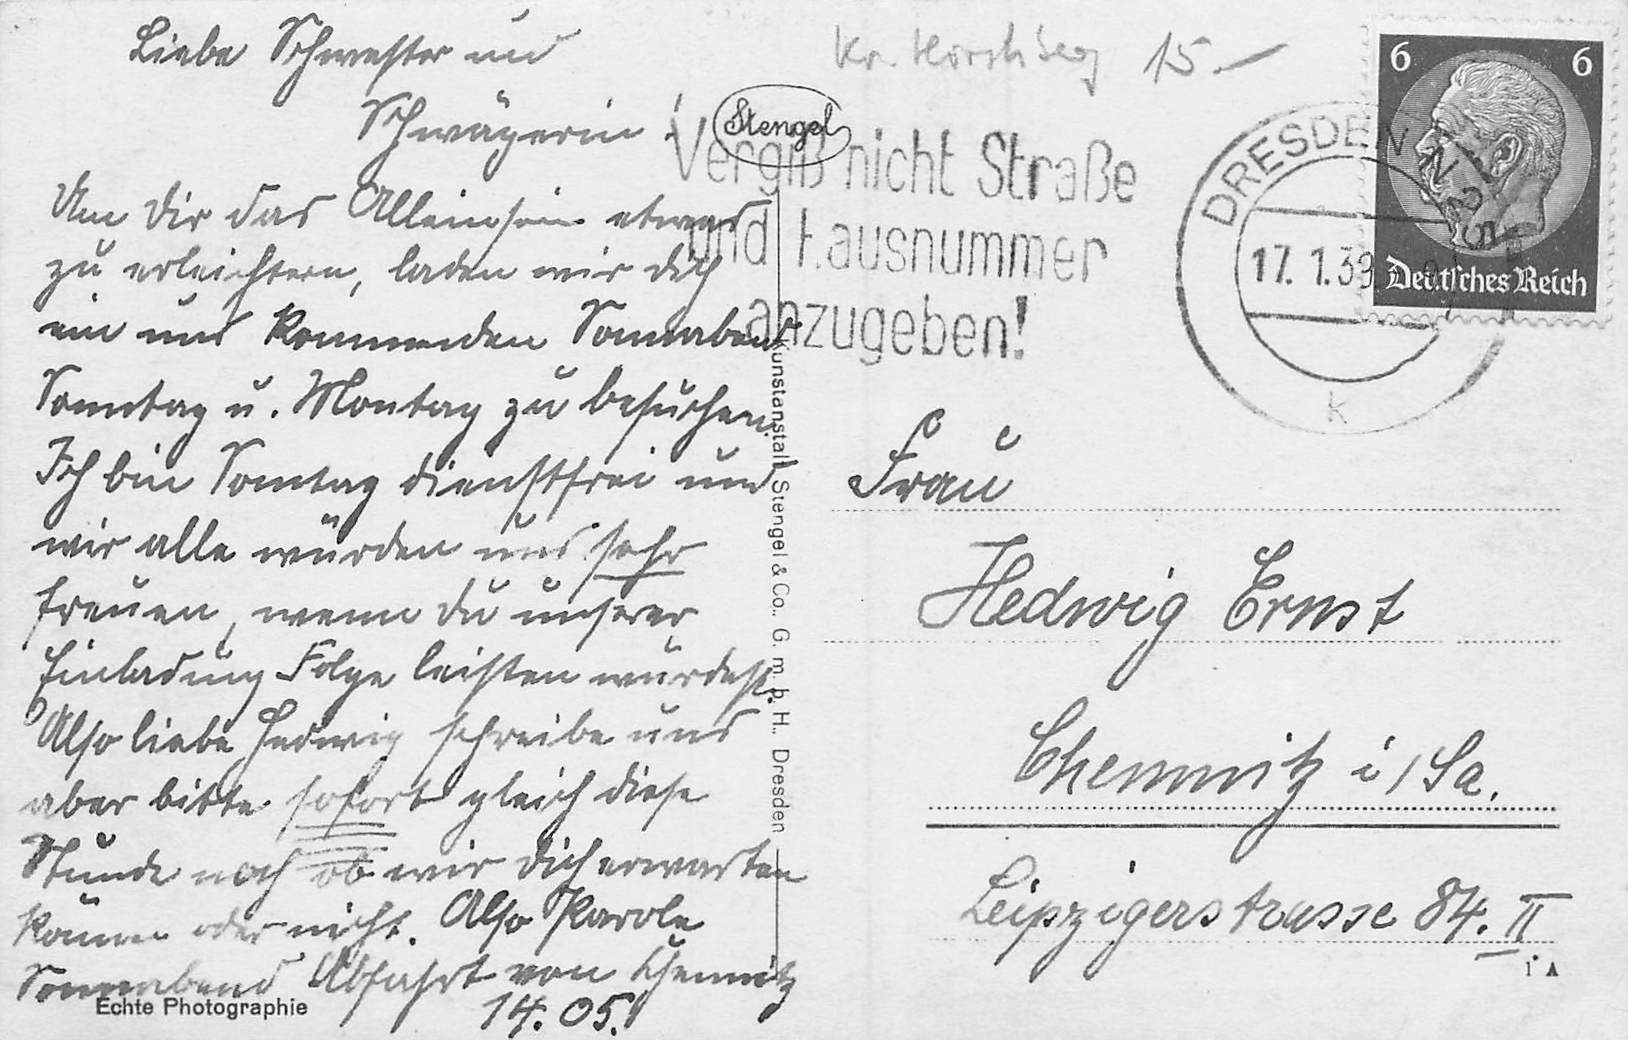 Liebe Schwester und
Schwägerin!
Um Dir das Alleinsein etwas
zu erleichtern, laden wir Dich
ein uns kommenden Sonnabend
Sonntag u. Montag zu besuchen.
Ich bin Sonntag dienstfrei und
wir alle würden uns sehr
freuen, wenn Du unserer
Einladung Folge leisten würdest.
Also liebe Hedwig schreibe uns
aber bitte sofort gleich diese
Stunde noch ob wir Dich erwarten
können oder nicht. Also Parole
Sonnabend Abfahrt von Chemnitz
14.05.
Echte Photographie
Stengel
Kunstanstalt Stengel & Co., G. m. b. H., Dresden
15.-
Vergiß nicht Straße
und Hausnummer
anzugeben!
DRESDEN
17.1.39
k
6 6
Deutsches Reich
Frau
Hedwig Ernst
Chemnitz i/Sa.
Leipzigerstrasse 84. II